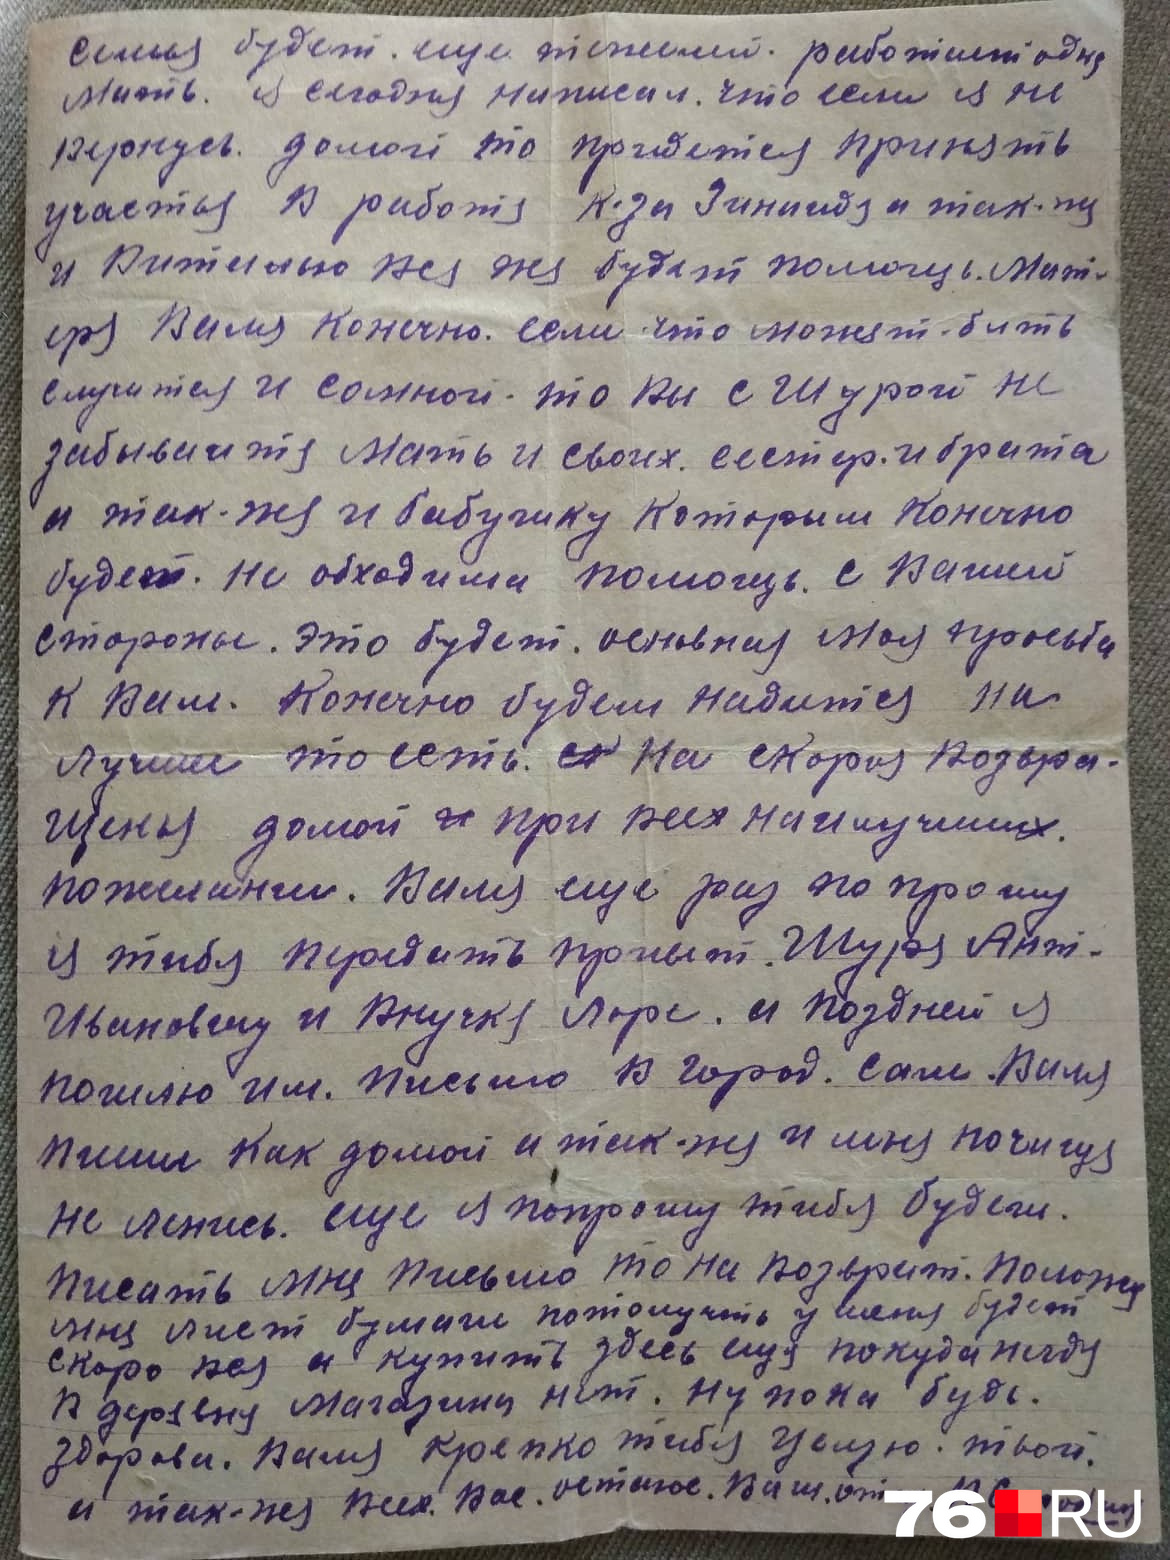 семья будет. еще тежелей. работает одна
Мать. я сегодня написал. что если я не
вернусь. домой то придется принять
участья в работя к-за Зинаидя а так-жя
и Виталью вся жя будет помощь. Мат-
еря Валя Конечно. если что можят-быть
случится и сомной. то Вы с Шурой не
забывайтя Мать и своих. сестер. и брата
а так-жя и бабушку Которым Конечно
будет. не обходима помощь. с Вашей
стороны. это будет. основная Моя просьба
к Вам. Конечно будем надится на
лучшее то есть. на скорая возвра-
щенья домой и при всех наилучших.
пожелании. Валя еще раз попрошу
я тибя передать привет. Шуря Ант-
Ивановичу и Внучкя Лоре. а поздней я
пошлю им. письмо в город. сам. Валя
пиши как домой а так-жя и мня почищя
не ленись. еще я попрошу тибя будеш.
писать мня письмо то на возврат. положи
мня лист бумаги потомучть у меня будет
скоро вся а купить здесь ещя покуда негдя
в деревня магазина нет. ну пока будь.
здорова. Валя крепко тибя целую. твой.
а так-жя всех. вас. остаюс. Ваш. от
76.RU